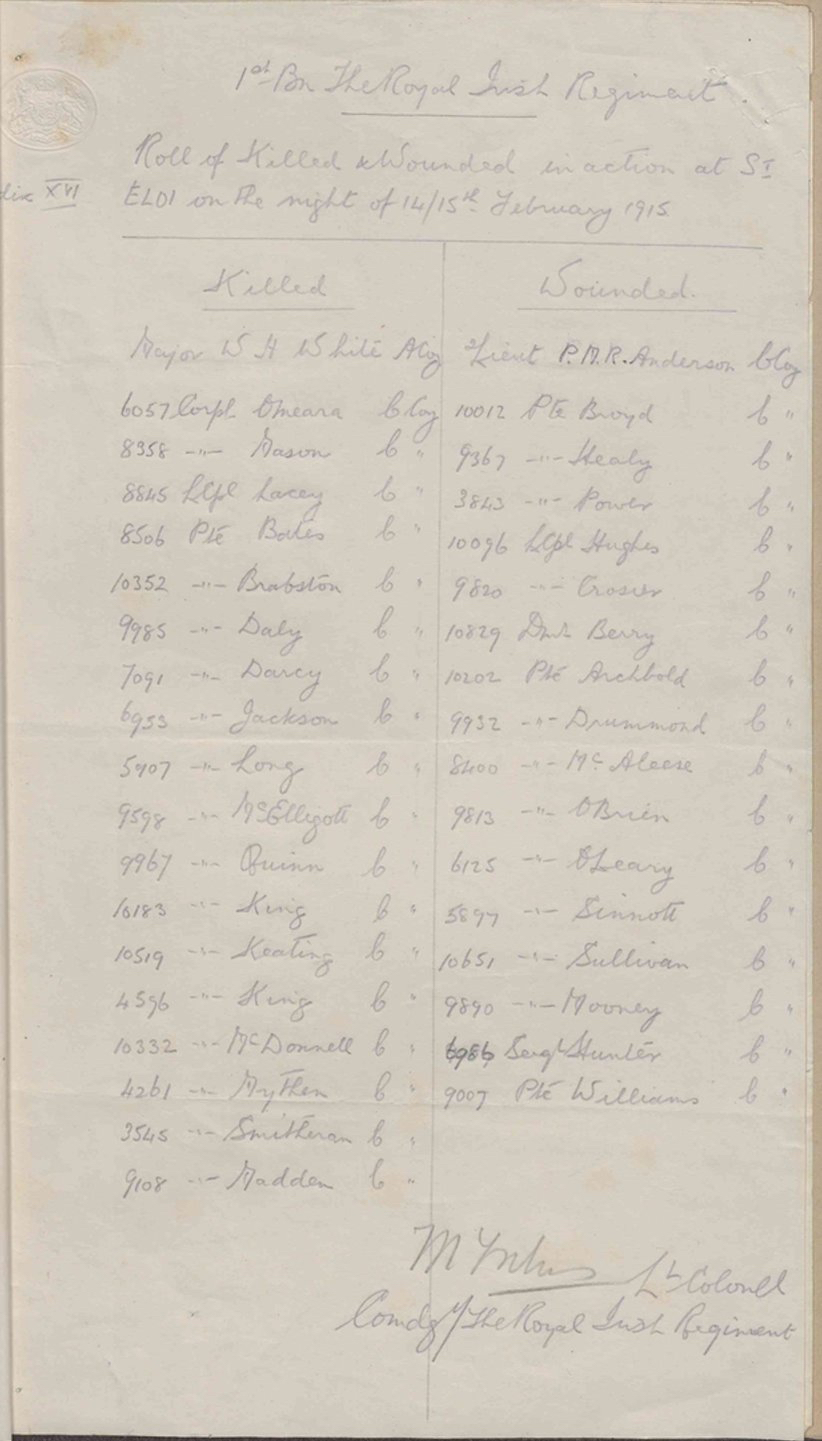 1st Bn The Royal Irish Regiment.
Roll of Killed & Wounded in action at St
dix XVI
ELOI on the night of 14/15th February 1915
Killed
Major W H White A Coy
6057 Corpl OMeara C Coy
8358 -"- Mason C "
8845 LCpl Lacey C "
8506 Pte Bates C "
10352 -"- Brabston C "
9985 -"- Daly C "
7091 -"- Darcy C "
6953 -"- Jackson C "
5907 -"- Long C "
9598 -"- McElligott C "
9967 -"- Quinn C "
10183 -"- King C "
10519 -"- Keating C "
4596 -"- King C "
10332 -"- McDonnell C "
4261 -"- Mythen C "
3545 -"- Smitheran C "
9108 -"- Madden C "
Wounded.
2Lieut P.M.R. Anderson C Coy
10012 Pte Broyd C "
9367 -"- Healy C "
3843 -"- Power C "
10096 LCpl Hughes C "
9820 -"- Crosier C "
10829 Dmr Berry C "
10202 Pte Archbold C "
9932 -"- Drummond C "
8400 -"- McAleese C "
9813 -"- OBrien C "
6125 -"- OLeary C "
5897 -"- Sinnott C "
10651 -"- Sullivan C "
9890 -"- Mooney C "
6986 Sergt Hunter C "
9007 Pte Williams C "
Lt Colonel
Comdg 1/ The Royal Irish Regiment